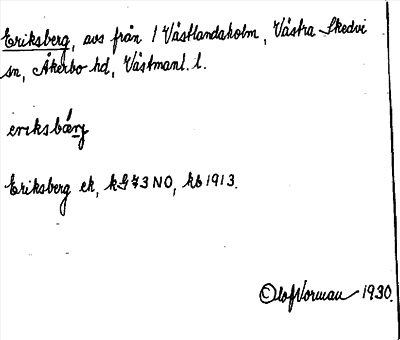 Eriksberg, avs från 1 Västlandaholm, Västra Skedvi
sn, Åkerbo hd, Västmanl. l.
eriksbärj
Eriksberg ek, kG 73 NO, kb 1913.
Olof Norman 1930.